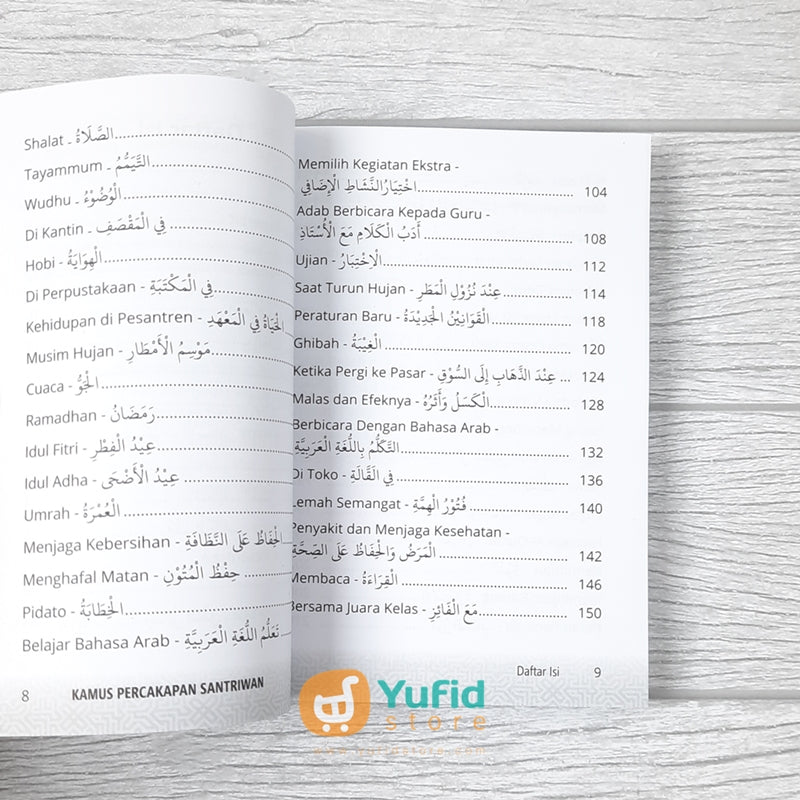 Shalat - الصَّلَاةُ
Tayammum - التَّيَمُّمُ
Wudhu - الْوُضُوْءُ
Di Kantin - فِي الْمَقْصَفِ
Hobi - الْهِوَايَةُ
Di Perpustakaan - فِي الْمَكْتَبَةِ
Kehidupan di Pesantren - الْحَيَاةُ فِي الْمَعْهَدِ
Musim Hujan - مَوْسِمُ الْأَمْطَارِ
Cuaca - الْجَوُّ
Ramadhan - رَمَضَانُ
Idul Fitri - عِيْدُ الْفِطْرِ
Idul Adha - عِيْدُ الْأَضْحَى
Umrah - الْعُمْرَةُ
Menjaga Kebersihan - الْحِفَاظُ عَلَى النَّظَافَةِ
Menghafal Matan - حِفْظُ الْمُتُوْنِ
Pidato - الْخِطَابَةُ
Belajar Bahasa Arab - تَعَلُّمُ اللُّغَةِ الْعَرَبِيَّةِ
8 KAMUS PERCAKAPAN SANTRIWAN
Memilih Kegiatan Ekstra -
اخْتِيَارُ النَّشَاطِ الْإِضَافِي 104
Adab Berbicara Kepada Guru -
أَدَبُ الْكَلَامِ مَعَ الْأُسْتَاذِ 108
Ujian - الْاِخْتِبَارُ 112
Saat Turun Hujan - عِنْدَ نُزُوْلِ الْمَطَرِ 114
Peraturan Baru - الْقَوَانِيْنُ الْجَدِيْدَةُ 118
Ghibah - الْغِيْبَةُ 120
Ketika Pergi ke Pasar - عِنْدَ الذَّهَابِ إِلَى السُّوْقِ 124
Malas dan Efeknya - الْكَسَلُ وَأَثَرُهُ 128
Berbicara Dengan Bahasa Arab -
التَّكَلُّمُ بِاللُّغَةِ الْعَرَبِيَّةِ 132
Di Toko - فِي الْبَقَّالَةِ 136
Lemah Semangat - فُتُوْرُ الْهِمَّةِ 140
Penyakit dan Menjaga Kesehatan -
الْمَرَضُ وَالْحِفَاظُ عَلَى الصِّحَّةِ 142
Membaca - الْقِرَاءَةُ 146
Bersama Juara Kelas - مَعَ الْفَائِزِ 150
Daftar Isi 9
Yufid
store
www.yufidstore.com